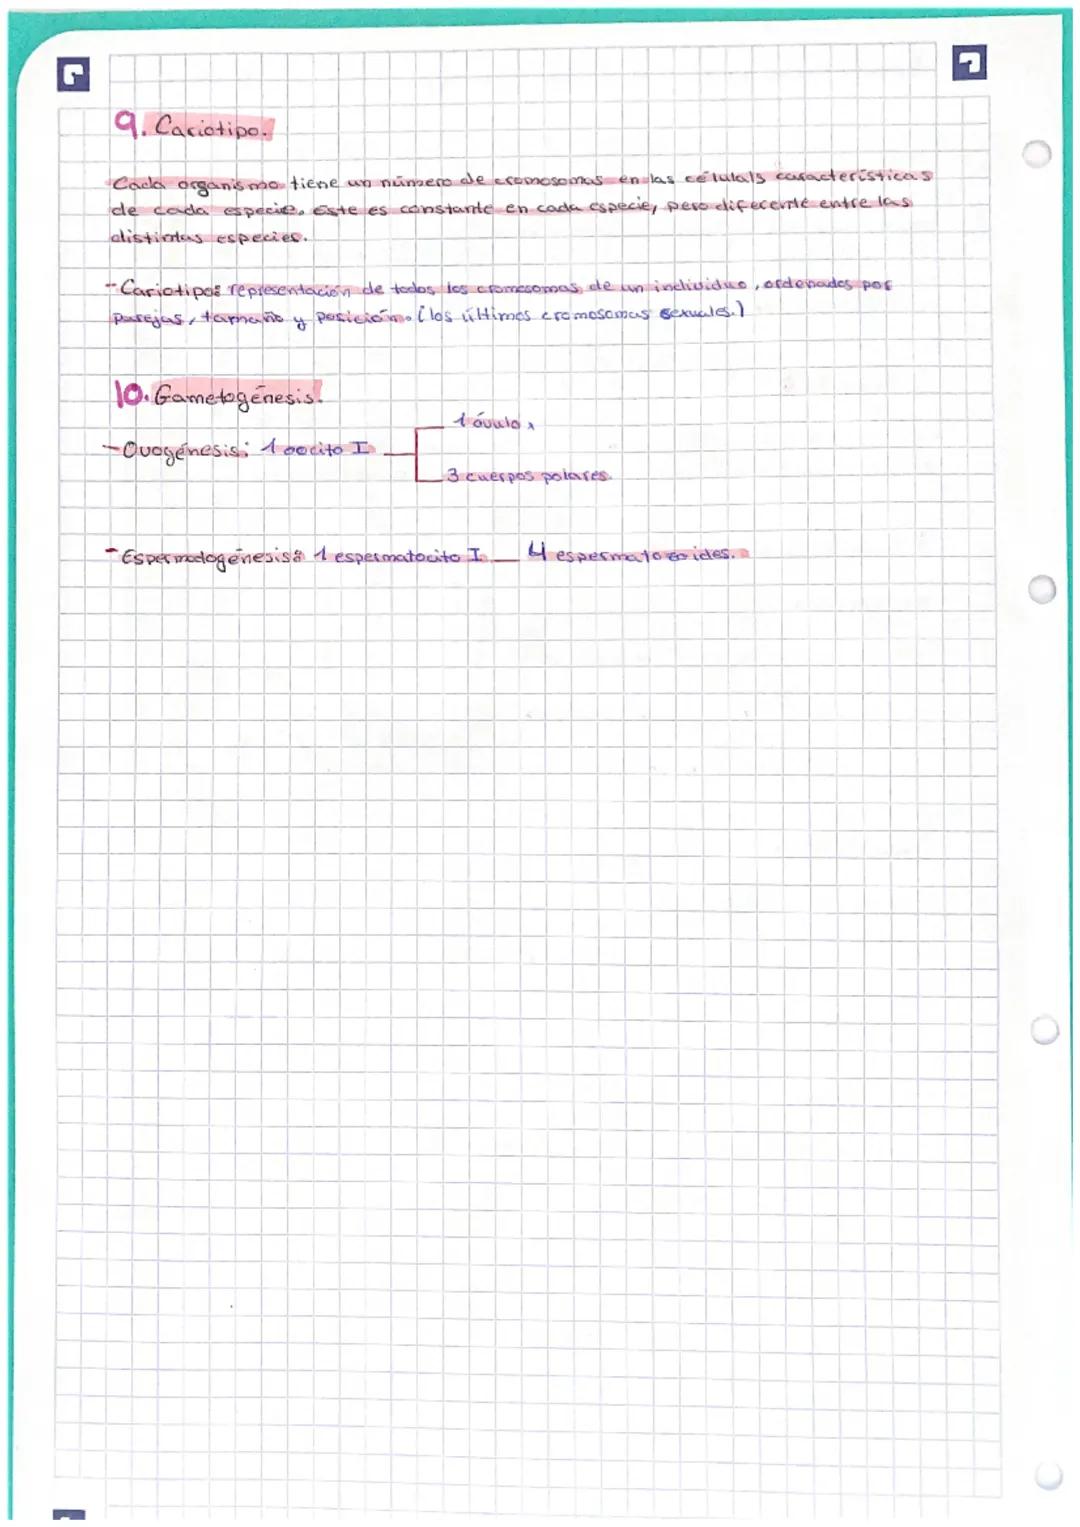 9. Cariotipo.
Cada organismo tiene un número de cromosomas en las célulals características
de cada especie. Este es constante en cada especie, pero diferente entre las
distintas especies.
- Cariotipo: representación de todos los cromosomas de un individuo, ordenados por
parejas, tamaño y posición. (los últimos cromosomas sexuales.)
10. Gametogénesis.
1 óvulo
- Ovogénesis: 1 oocito I
3 cuerpos polares.
- Espermatogénesis: 1 espermatocito I 4 espermatozoides.